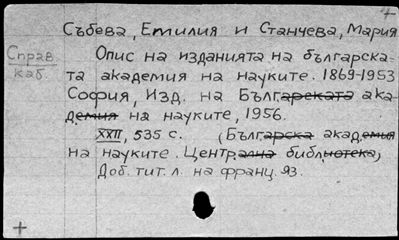 Събева, Емилия и Станчева, Мария
Справ.
каб.
Опис на изданията на българска-
та академия на науките. 1869-1953
София, Изд. на Българската ака-
демия на науките, 1956.
XXII, 535 с. (Българска академия
на науките. Централна библиотека)
Доб. тит. л. на франц. яз.